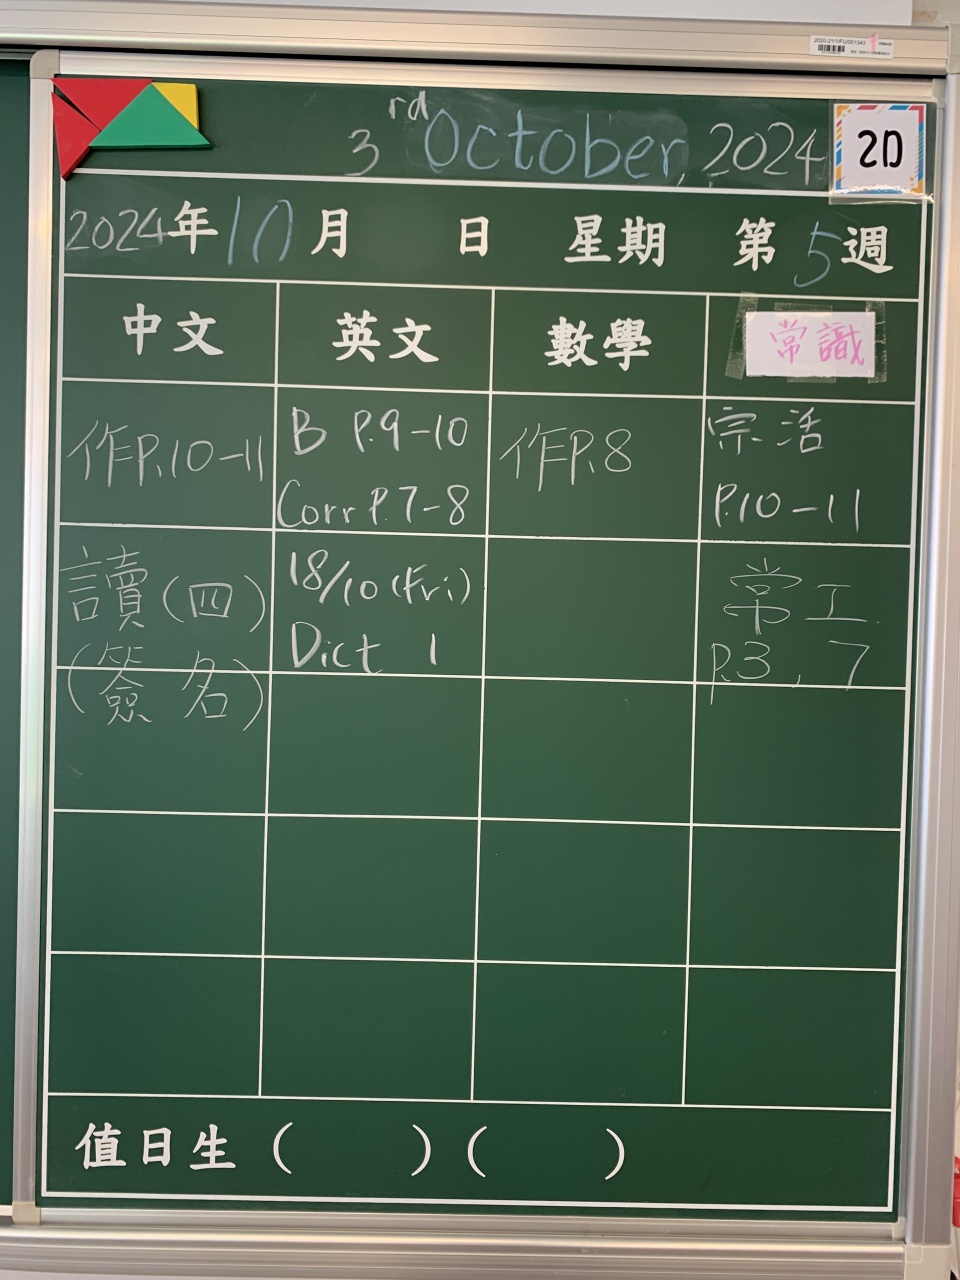 2020-21/1/FU/001343
3rd October, 2024
2D
2024年10月 日 星期 第5週
中文 英文 數學 常識
作P.10-11
B P.9-10
Corr P.7-8
作P.8
宗.活
P.10-11
讀(四)
(簽名)
18/10 (Fri)
Dict 1
常工
P.3, 7
值日生 ( ) ( )